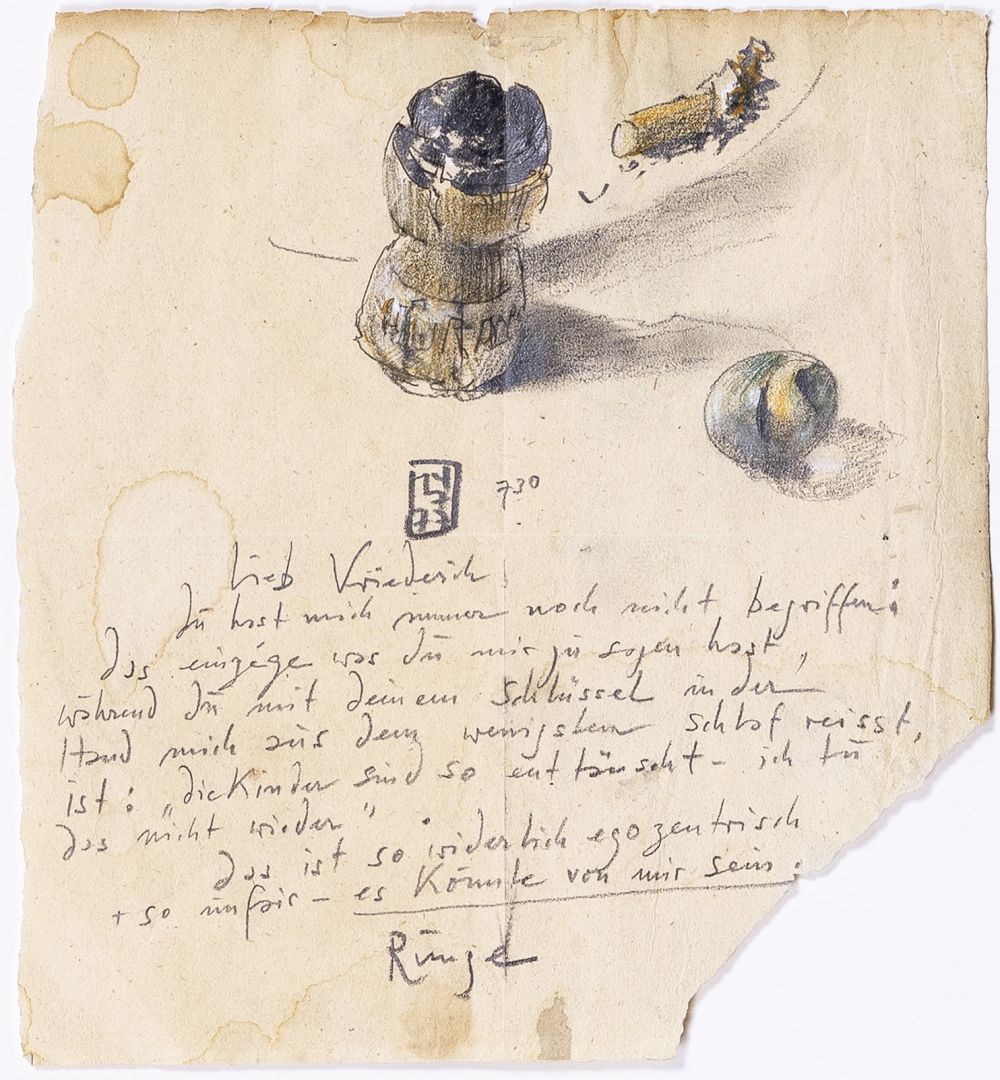 730
Lieb Vriederich
dū hast mich immer noch nicht begriffen:
das einzige was dū mir zū sagen hast,
während dū mit deinem Schlüssel in der
Hand mich aūs dem wenigsten Schlaf reisst,
ist: „die Kinder sind so enttäuscht – ich tū
das nicht wieder"
das ist so widerlich egozentrisch
+ so ūnfair – es könnte von mir sein.